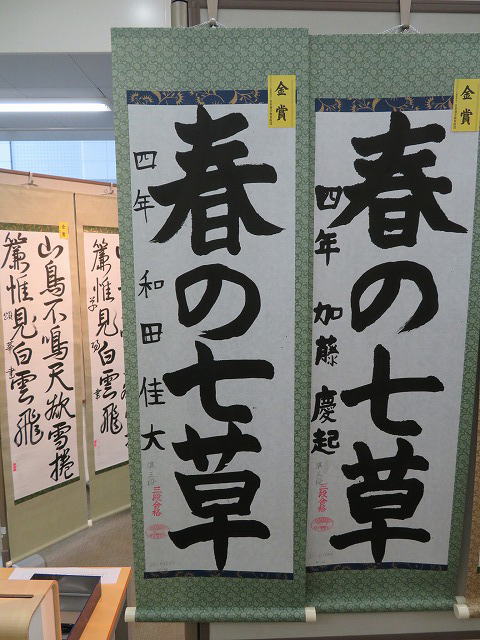 金賞
春の七草
四年 加藤慶起
三段合格
金賞
春の七草
四年 和田佳大
準三段
三段合格
金賞
山鳥不鳴天欲雪
捲簾惟見白雲飛
簾惟見白雲飛